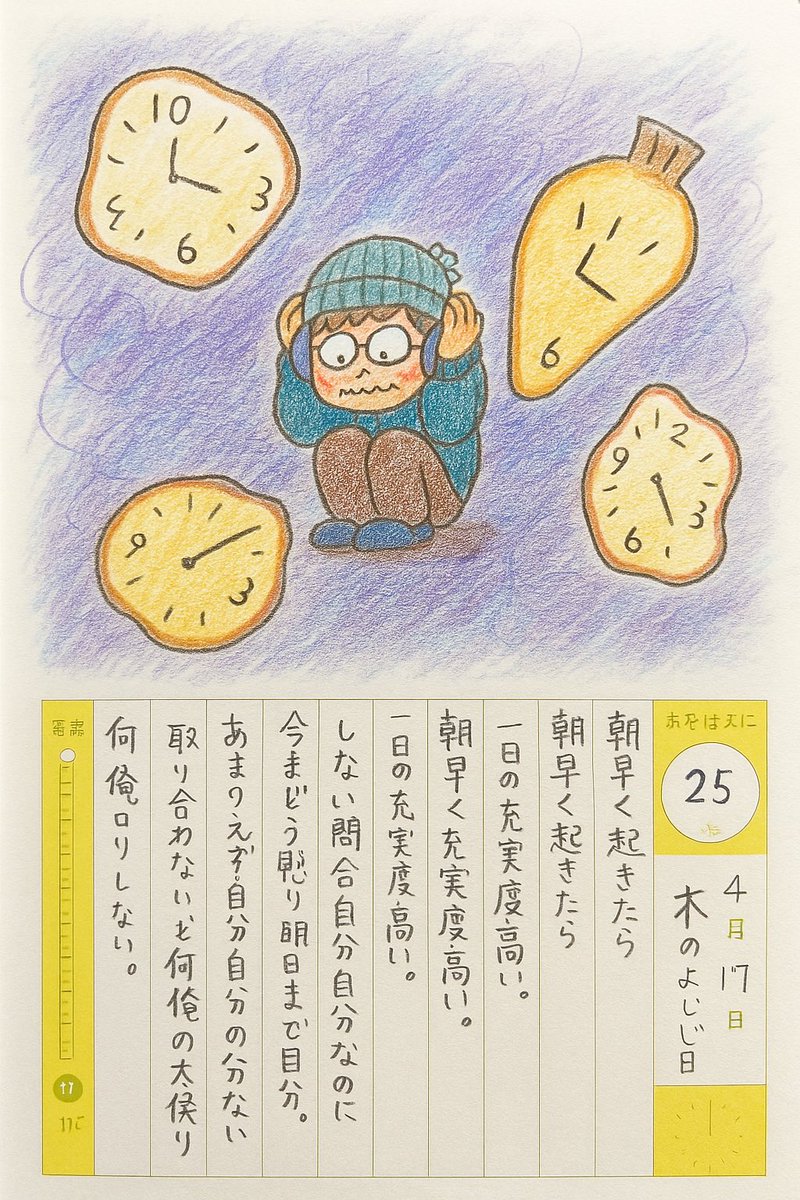 25
4月17日
木のよじじ日
朝早く起きたら
朝早く起きたら
一日の充実度高い。
朝早く充実度高い。
一日の充実度高い。
しない問合自分自分なのに
今まどう り明日まで目分。
あまりえず自分自分の分ない
取り合わないと何俺の太 り
何俺ロりしない。
10
3
6
3
6
12
9
3
6
9
3